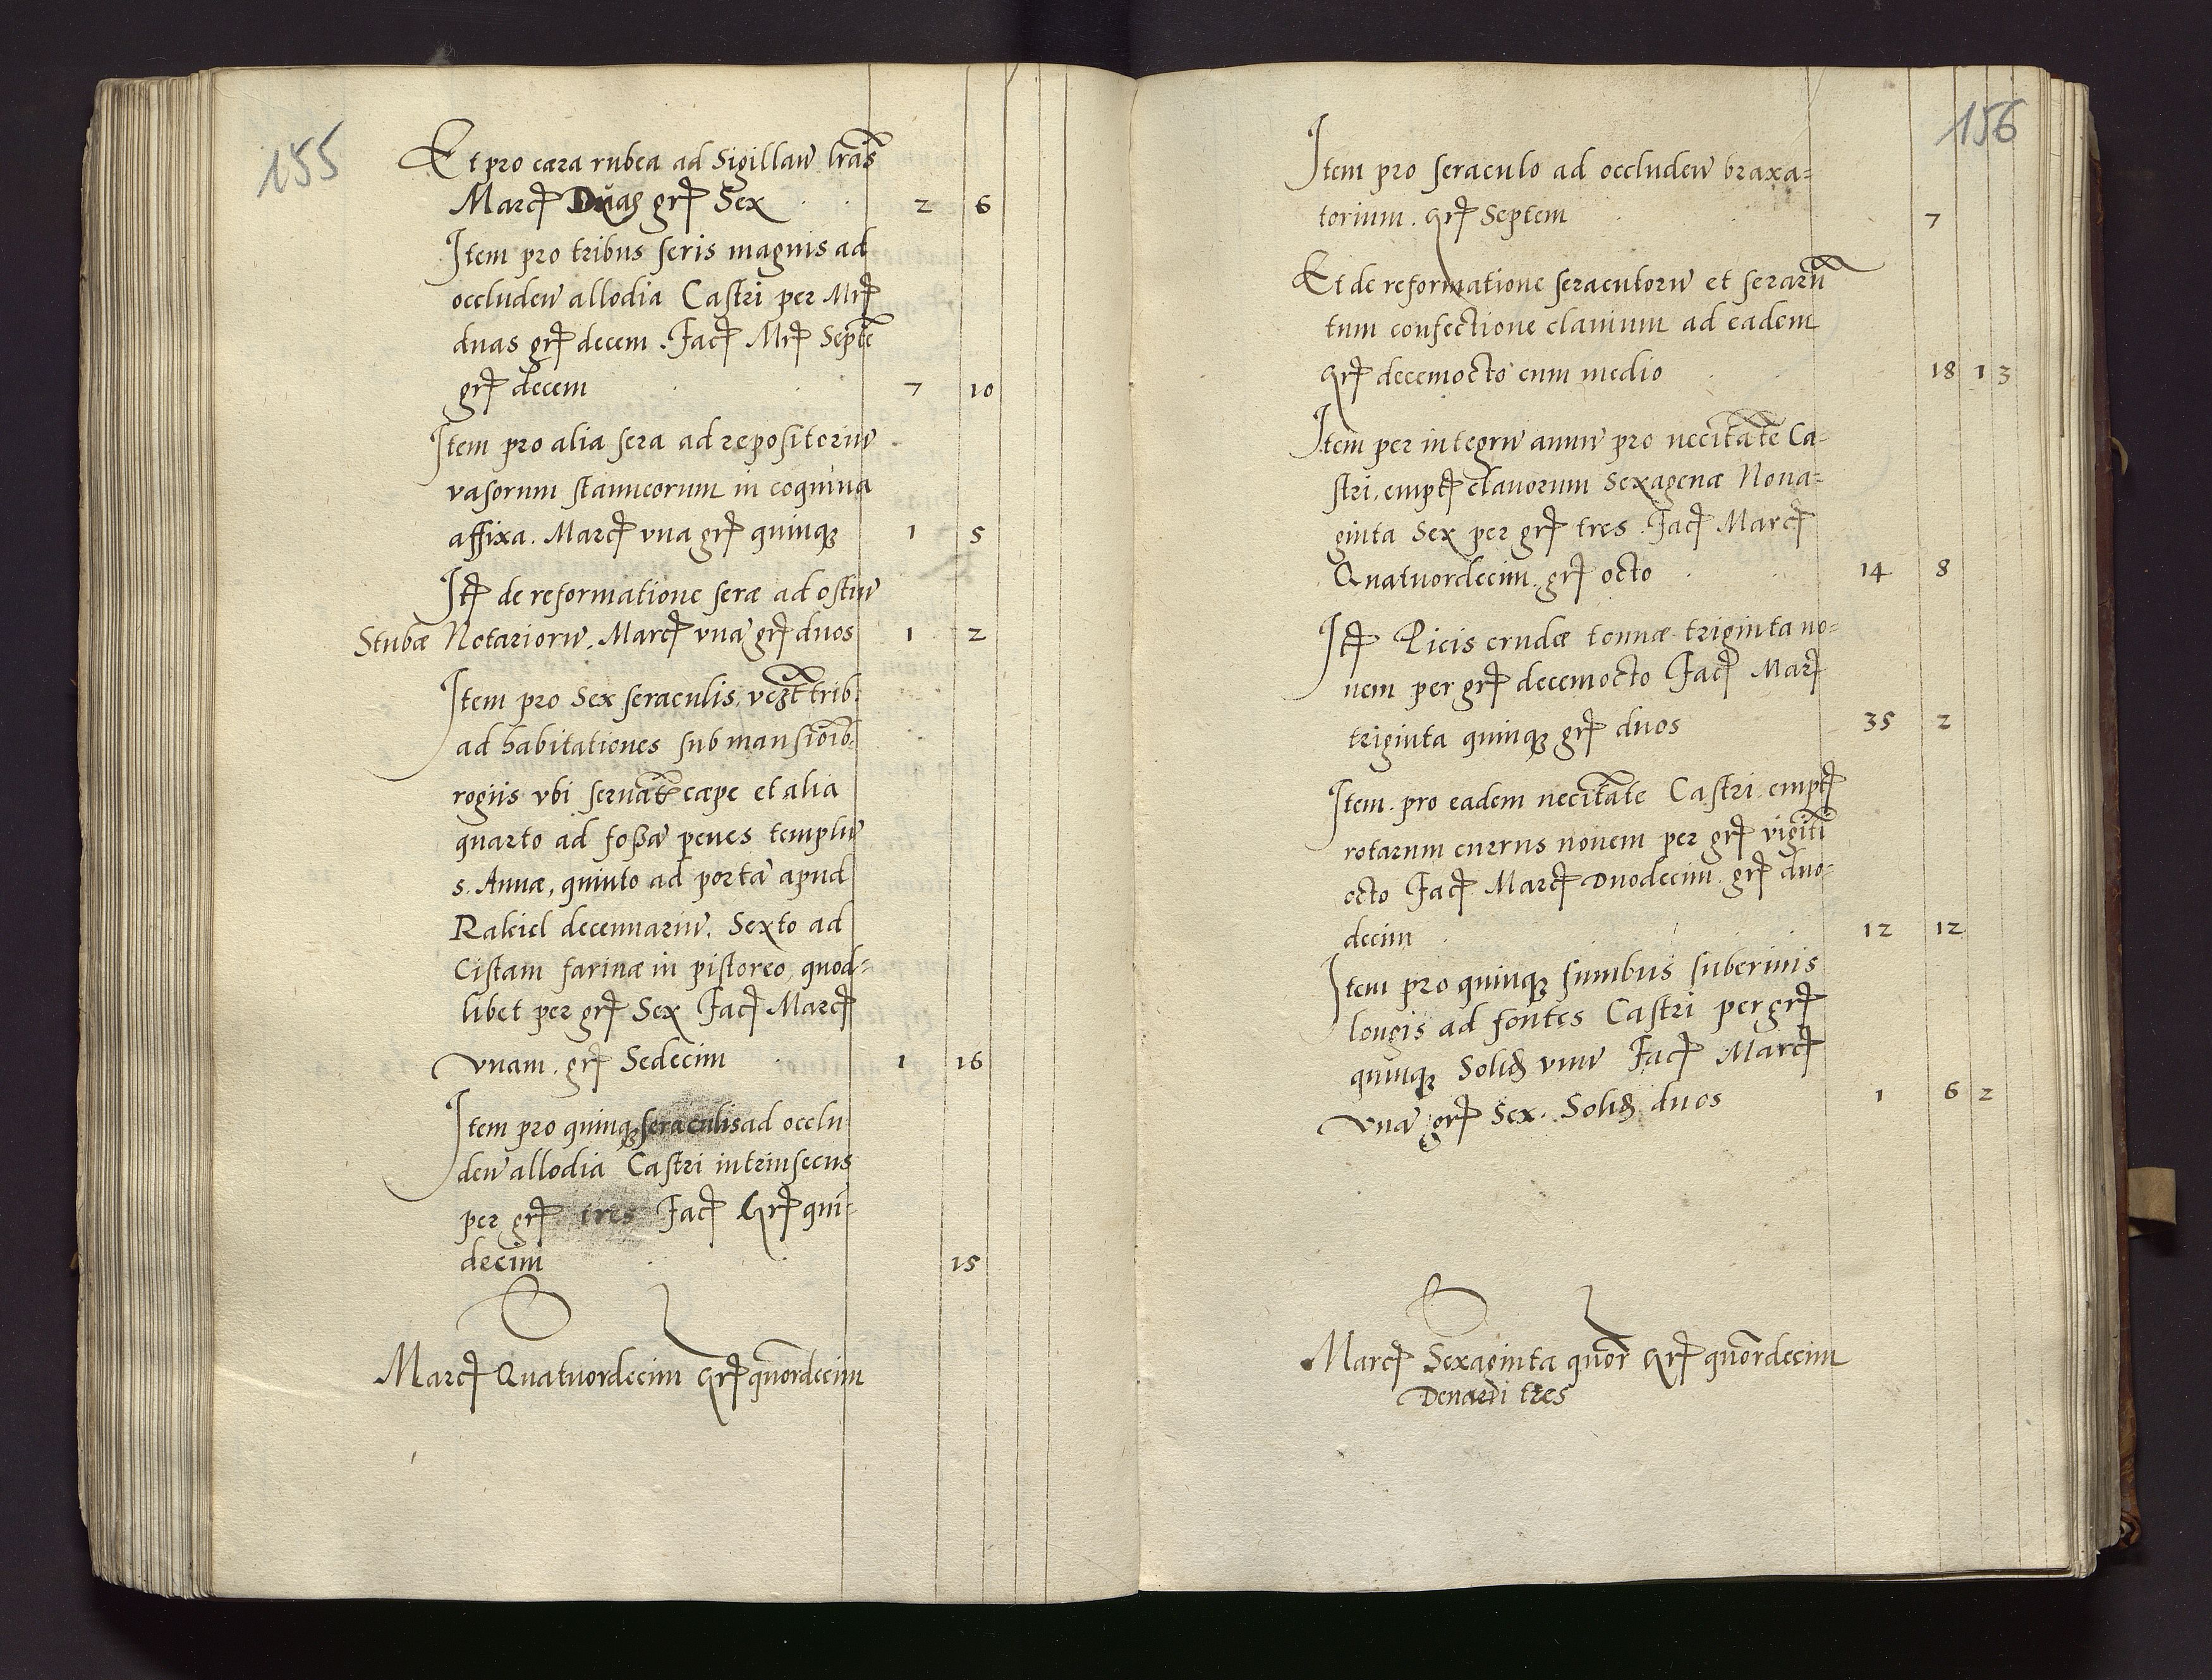 155
Et pro cæra rubea ad Sigillan̄ lr̄as
Marcſ Duas grſ Sex . . 2 6
Item pro tribus seris magnis ad
occluden̄ allodia Castri per Mrſ
duas grſ decem . Facſ Mrſ Septē
grſ decem . . 7 10
Item pro alia sera ad repositoriū
vasorum stanneorum in coquina
affixa . Marcſ vna grſ quinqꝫ 1 5
Itſ de reformatione seræ ad ostiū
Stubæ Notariorū . Marcſ vnā grſ duos 1 2
Item pro Sex seraculis, vez̄t trib.
ad habitationes sub mansioīb.
rogiis vbi servāt cæpe et alia
quarto ad foßā penes templū
S. Annæ, quinto ad portā apud
Rakiel decennariū. Sexto ad
Cistam farinæ in pistoreo, quod=
libet per grſ Sex Facſ Marcſ
vnam . grſ Sedecim . 1 16
Item pro quinqꝫ seraculis ad occlu
den̄ allodia Castri intrinsecus
per grſ tres Facſ Grſ qui=
decim . . 15
Marcſ Quatuordecim Grſ quōrdecim
156
Item pro seraculo ad occluden̄ braxa=
torium . Grſ Septem 7
Et de reformatione seraculorū et serarū
tum confectione clavium ad eadem
Grſ decemocto cum medio 18 1 3
Item per integrū annū pro necītāte Ca=
stri, emptſ clavorum Sexagenæ Nona=
ginta Sex per grſ tres . Facſ Marcſ
Quatuordecim . grſ octo . 14 8
Itſ Picis crudæ tonnæ triginta no=
uem per grſ decemocto Facſ Marſ
triginta quinqꝫ grſ duos 35 2
Item . pro eadem necītāte Castri emptſ
rotarum currus nouem per grſ vigīti
octo Facſ Marcſ Duodecim . grſ duo=
decim . 12 12
Item pro quinqꝫ funibus suberinis
longis ad fontes Castri per grſ
quinqꝫ Solid vnū Facſ Marcſ
vnā grſ Sex . Solid duos 1 6 2
Marcſ Sexaginta quōr Grſ quōrdecim
Denarii tres